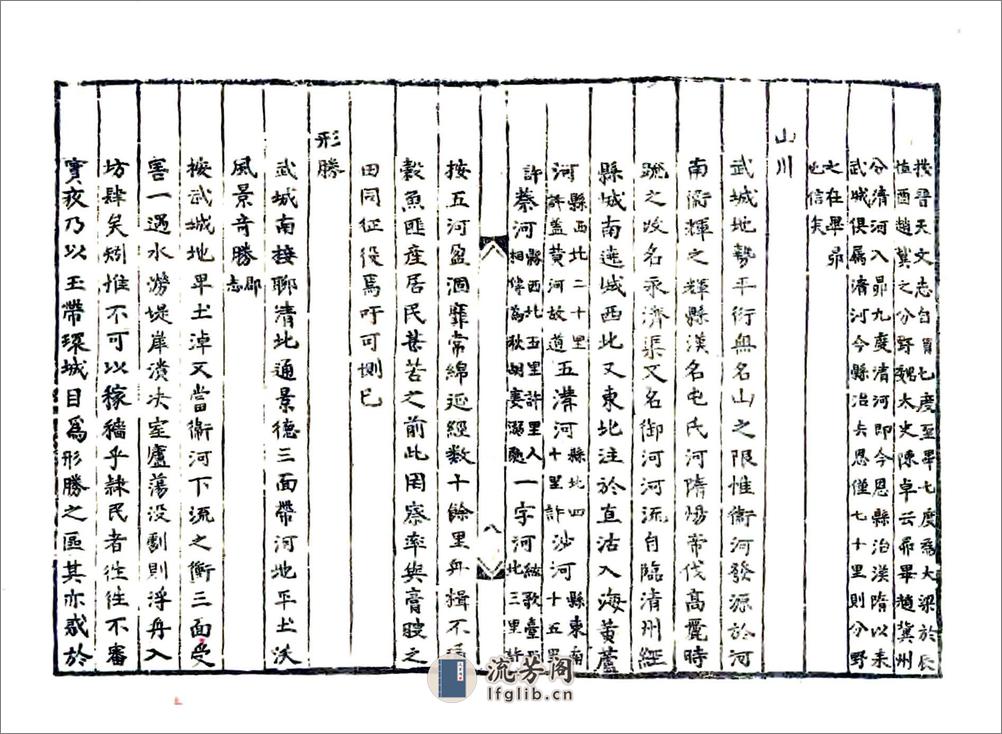 按晉天文志自胃七度至畢七度爲大梁於辰
值酉趙冀之分野魏太史陳卓云昴畢趙冀州
分清河入昴九度清河即今恩縣治漢隋以來
武城俱屬清河今縣治去恩僅七十里則分野
之在畢昴
也信矣
山川
武城地勢平衍無名山之限惟衛河發源於河
南衛輝之輝縣漢名屯氏河隋煬帝伐高麗時
疏之改名永濟渠又名御河河流自臨清州經
縣城南遶城西北又東北注於直沽入海黃蘆
河縣西北二十里許蓋黄河故道五溝河縣北四十里許沙河縣東南十五里
許蔡河縣西北五里許里人相傳為秋胡妻溺處一字河絃歌臺北三里許
按五河盈涸靡常綿延經數十餘里舟楫不通
穀魚匪産居民甚苦之前此罔察率與膏腴之
田同征役焉吁可惻已
形勝
武城南接聊清北通景德三面帶河地平土沃
風景奇勝郡志
按武城地卑土淖又當衛河下流之衝三面受
害一遇水澇堤岸潰决室廬蕩没劃則浮舟入
坊肆矣矧惟不可以稼穡乎隷民者往往不審
實夜乃以玉帶環城目爲形勝之區其亦惑於
八
流芳阁
lfglib.cn